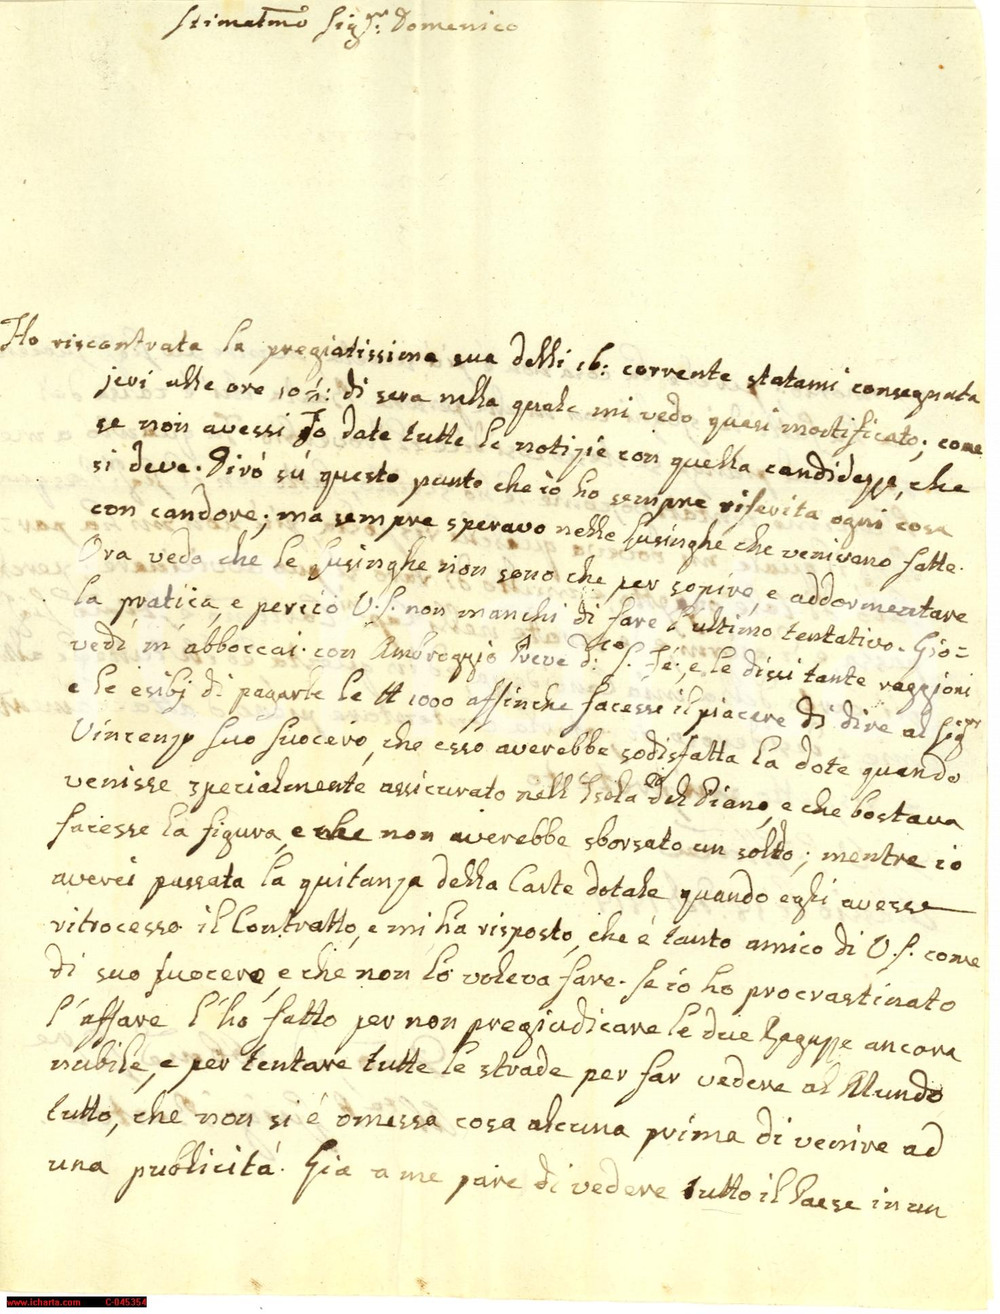 Stimatmo Sigr. Domenico
Ho riscontrata la pregiatissima sua delli 16: corrente statami consegnata
jeri alle ore 10 n: di sera nella quale mi vedo quasi mortificato; come
se non avessi Io date tutte le notizie con quella candidezza, che
si deve. Dirò sù questo punto che io ho sempre riferita ogni cosa
con candore; ma sempre speravo nelle lusinghe che venivano fatte.
Ora vedo che le lusinghe non sono che per sopire, e addormentare
la pratica, e perciò V.S. non manchi di fare l'ultimo tentativo. Gio=
vedì m'abboccai con Ambroggio Preve d:co S. Fé:, e le dissi tante raggioni
e le esibj di pagarle le # 1000 affinche facesse il piacere di dire al Sigr
Vincenzo suo suocero, che esso averebbe sodisfatta la dote quando
venisse specialmente assicurato nell'Isola del Piano, e che bastava
facesse la figura, e che non averebbe sborsato un soldo; mentre io
averei passata la quitanza della Carte dotale quando egli avesse
ritrocesso il Contratto, e mi hà risposto, che è tanto amico di V.S. come
di suo suocero, e che non lo voleva fare. Se io ho procrastinato
l'affare l'ho fatto per non pregiudicare le due Ragazze ancora
nubile, e per tentare tutte le strade per far vedere al Mundo
tutto, che non si è omessa cosa alcuna prima di venire ad
una publicità. Gia a me pare di vedere tutto il Paese in un
www.icharta.com C-045354